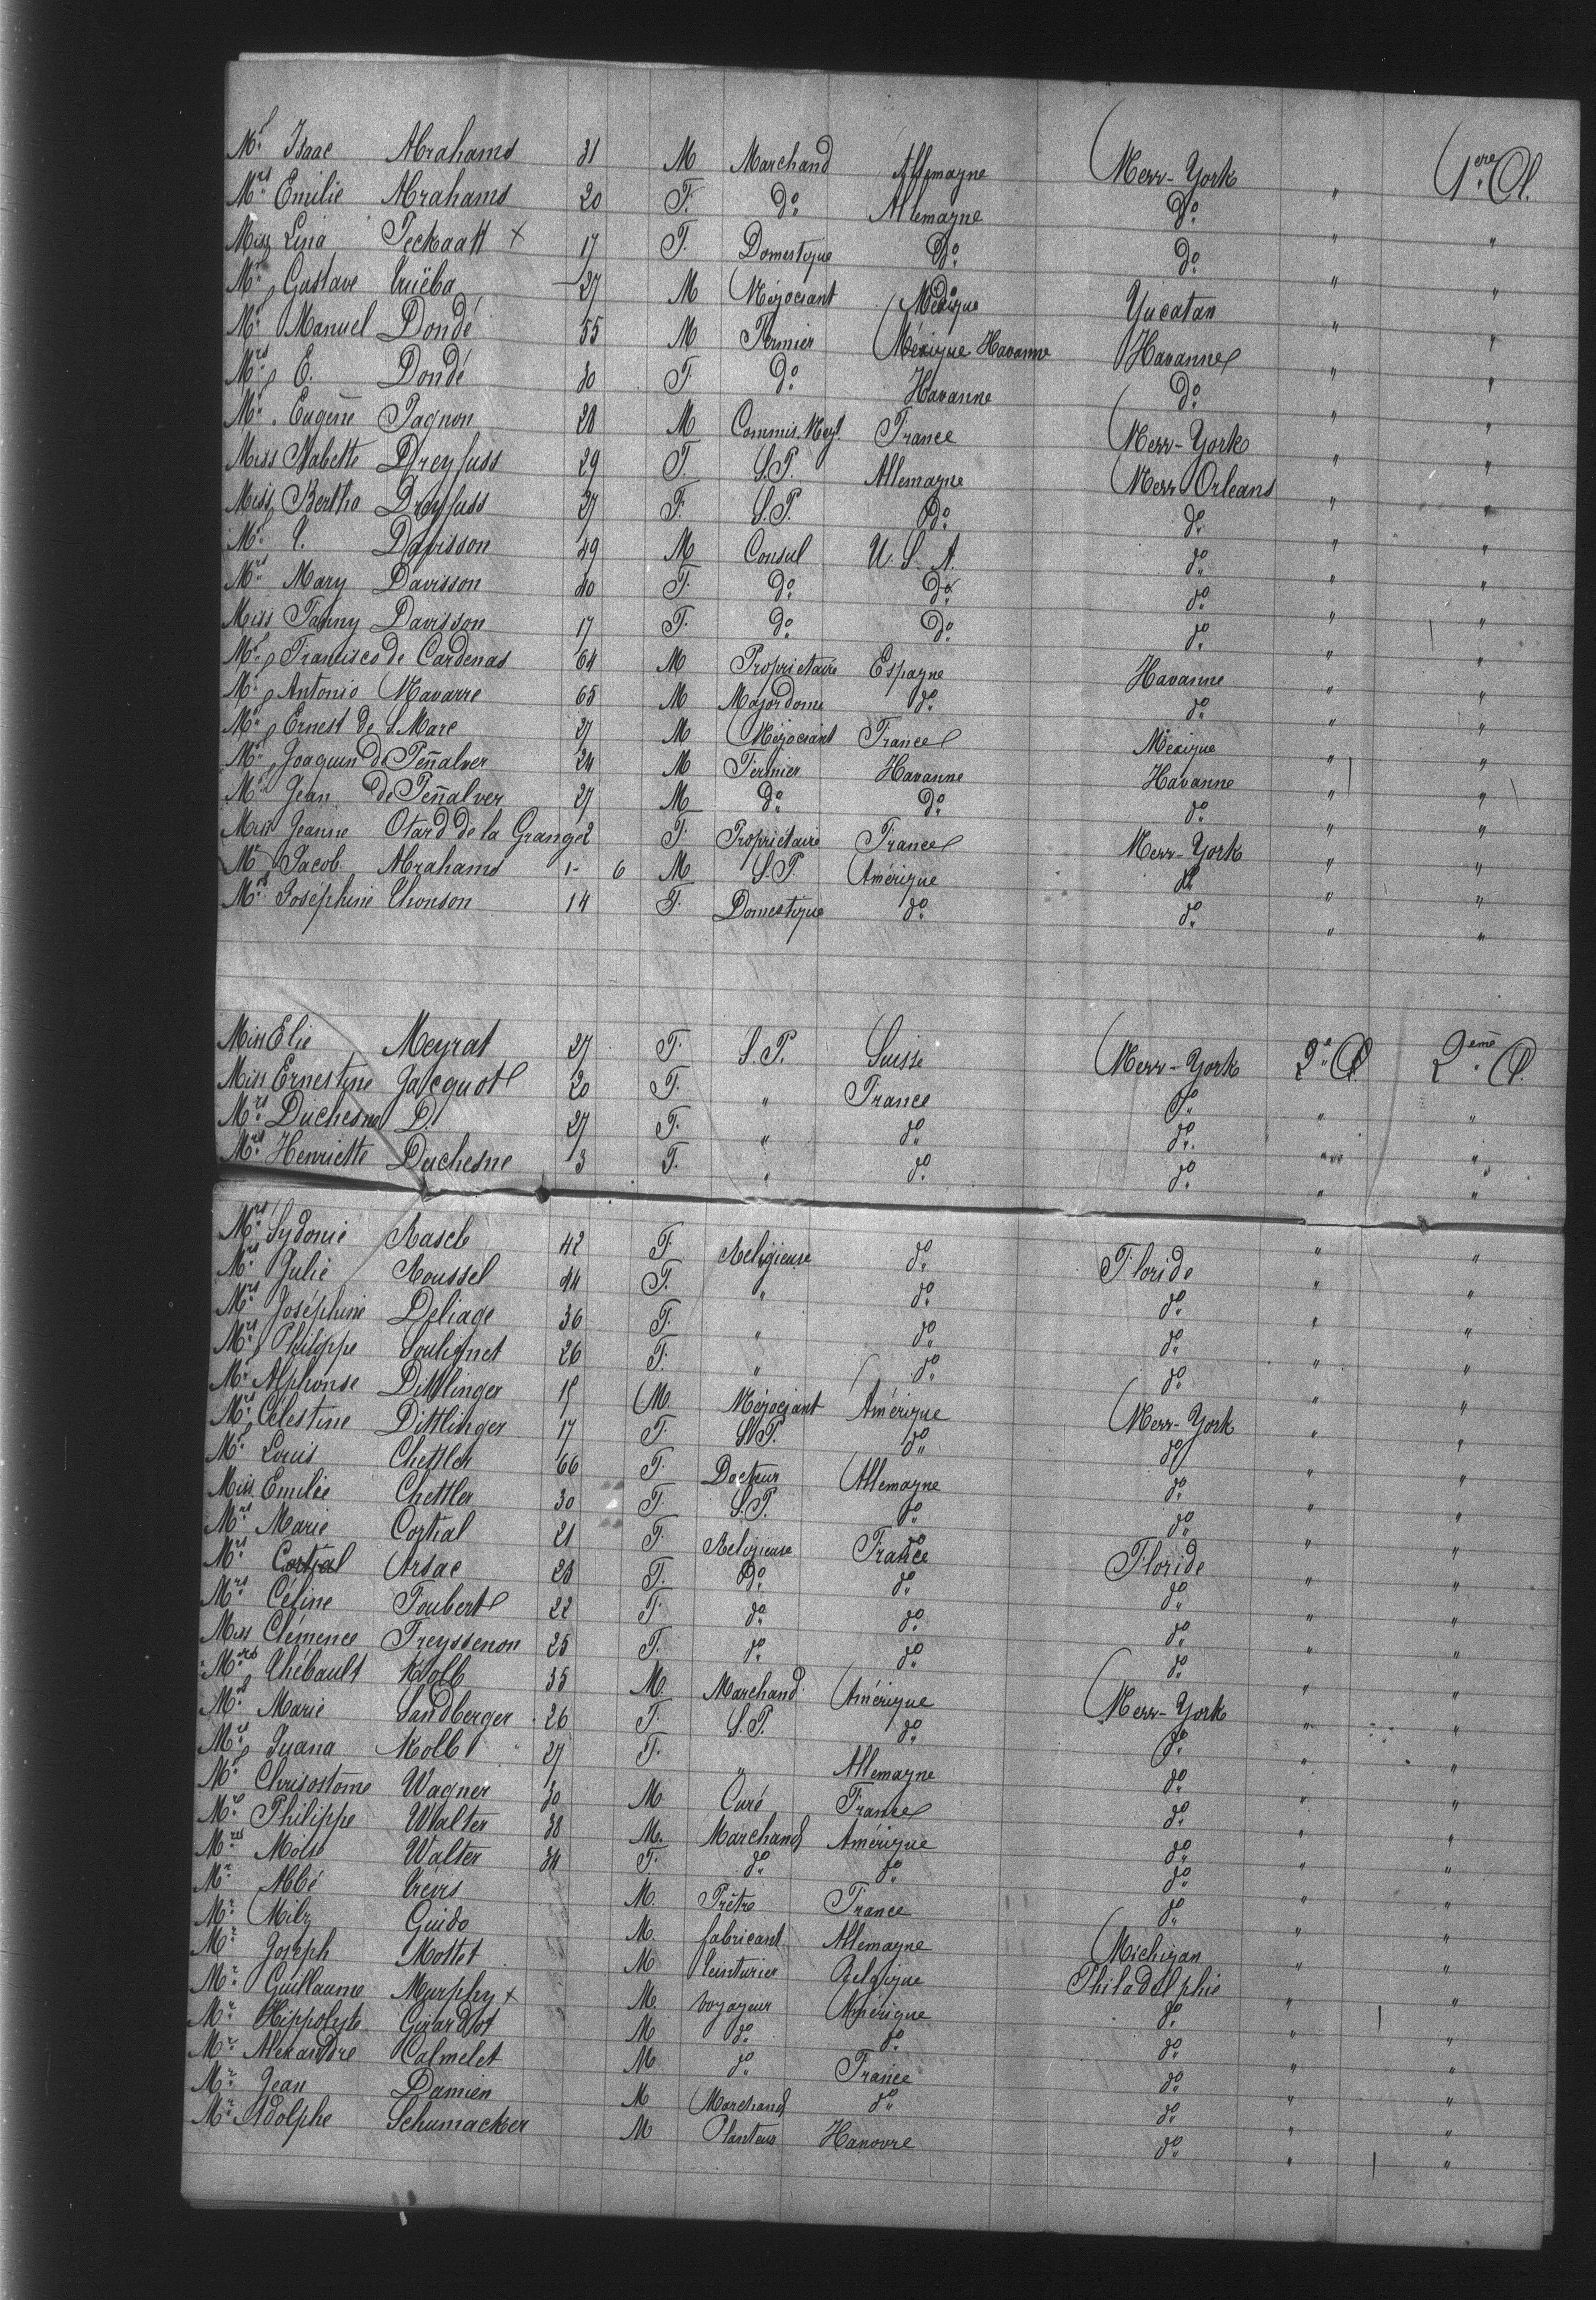 Mr Isaac Abrahams 31 M Marchand Allemagne New-York " 1ere Cl.
Mrs Emilie Abrahams 20 F. do Allemagne do " "
Miss Lina Peckaatt x 17 F. Domestique do do " "
Mr Gustave 27 M Négociant Mexique Yucatan " "
Mr Manuel Dondé 55 M Fermier Mexique Havanne Havanne " "
Mrs E. Dondé 30 F do Havanne do " "
Mr Eugène Pagnon 28 M Commis. Negt. France New-York " "
Miss Babette Dreyfuss 29 F. S.P. Allemagne New Orleans " "
Miss Bertha Dreyfuss 27 F. S.P. do do " "
Mr Davisson 49 M Consul U.S.A. do " "
Mrs Mary Davisson 40 F. do do do " "
Miss Fanny Davisson 17 F. do do do " "
Mr Francisco de Cardenas 64 M Propriétaire Espagne Havanne " "
Mr Antonio Navarre 65 M Majordome do do " "
Mr Ernest de St Marc 27 M Négociant France Mexique " "
Mr Joaquin de Peñalver 24 M Fermier Havanne Havanne " "
Mr Jean de Peñalver 27 M do do do " "
Miss Jeanne Otard de la Grange 2 F. Propriétaire France New-York " "
Mr Jacob Abrahams 1- 6 M S.P. Amérique do " "
Mrs Joséphine Thonson 14 F. Domestique do do " "
Miss Elie Meyrat 27 F. S.P. Suisse New-York 2e Cl. 2eme Cl.
Miss Ernestine Jacquot 20 F. " France do " "
Mrs Duchesne D. 27 F. " do do " "
Mrs Henriette Duchesne 3 F. " do do " "
Mrs Sydonie Rascle 42 F Religieuse do Floride " "
Mrs Julie Roussel 44 F. " do do " "
Mrs Joséphine Deliage 36 F. " do do " "
Mrs Philippe Soulignet 26 F. " do do " "
Mr Alphonse Dittlinger 15 M. Négociant Amérique New-York " "
Mrs Célestine Dittlinger 17 F. S.P. do do " "
Mr Louis Chettler 66 F. Docteur Allemagne do " "
Miss Emilie Chettler 30 F. S.P. do do " "
Mrs Marie Cortial 21 F. Religieuse France Floride " "
Mrs Cortial Arsac 23 F. do do do " "
Mrs Céline Joubert 22 F. do do do " "
Miss Clémence Freyssenon 25 F. do do do " "
Mrs Thébault Kolb 35 M. Marchand Amérique New-York " "
Mrs Marie Sandberger 26 F. S.P. do do " "
Mrs Juana Kolb 27 F. " Allemagne do " "
Mr Chrisostome Wagner 30 M Curé France do " "
Mr Philippe Walter 38 M. Marchand Amérique do " "
Mrs Walter 34 F. do do do " "
Mr Abbé M. Prêtre France do " "
Mr Guido M. fabricant Allemagne Michigan " "
Mr Joseph Mottet M teinturier Belgique Philadelphie " "
Mr Guillaume Murphy x M. voyageur Amérique do " "
Mr Hippolyte Girardot M do do do " "
Mr Alexandre Calmelet M do France do " "
Mr Jean Damien M Marchand do do " "
Mr Adolphe Schumacker M Planteur Hanovre do " "